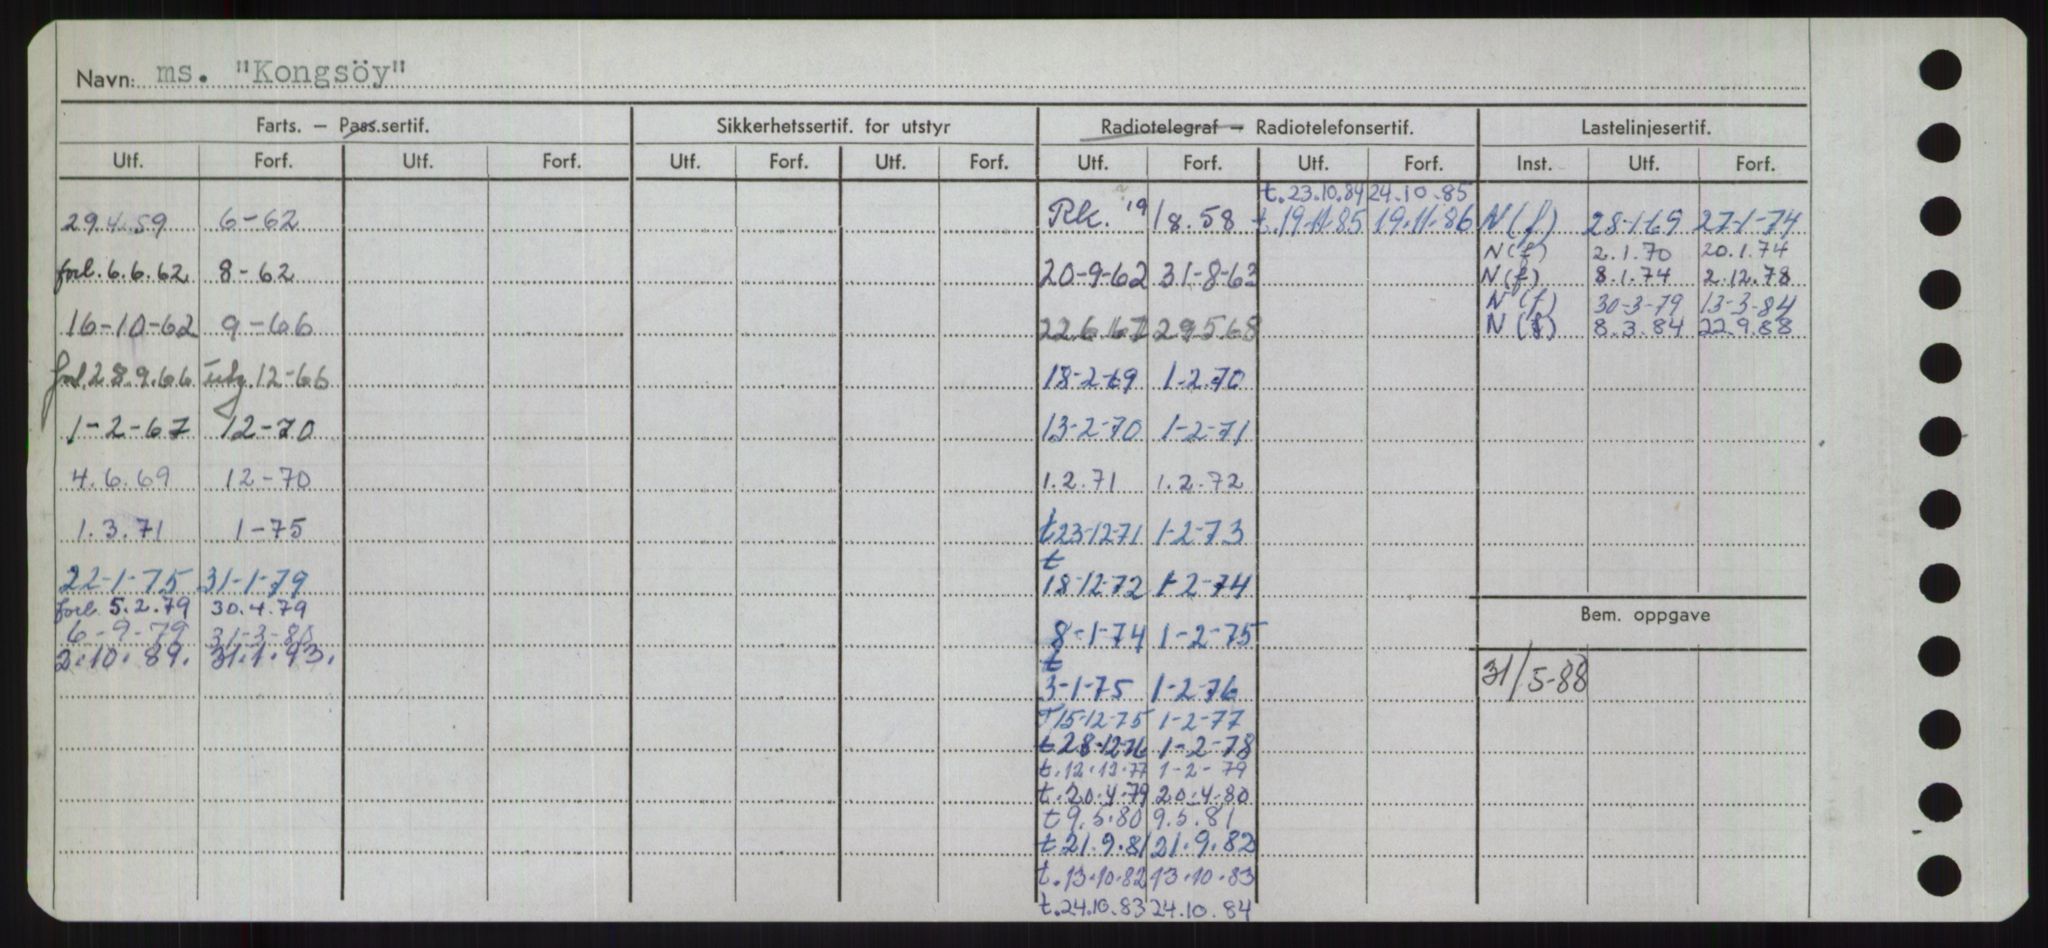 Navn: ms. "Kongsöy"
Farts. – Pass.sertif. Sikkerhetssertif. for utstyr Radiotelegraf – Radiotelefonsertif. Lastelinjesertif.
Utf. Forf. Utf. Forf. Utf. Forf. Utf. Forf. Utf. Forf. Utf. Forf. Inst. Utf. Forf.
t. 23.10.84 24.10.85
29.4.59 6-62 Rk. 19/8.58 t. 19.11.85 19.11.86 N(f) 28-1-69 27-1-74
N(f) 2.1.70 20.1.74
forl. 6.6.62 8-62 20-9-62 31-8-63 N(f) 8.1.74 2.12.78
N(f) 30-3-79 13-3-84
16-10-62 9-66 22.6.67 29.5.68 N(f) 8.3.84 22.9.88
forl. 28.9.66 12-66 18-2-69 1-2.70
1-2-67 12-70 13-2-70 1-2-71
4.6.69 12-70 1.2.71 1.2.72
1.3.71 1-75 t 23-12-71 1-2-73
22-1-75 31-1-79 t 18-12-72 1-2-74
forl. 5.2.79 30.4.79
Bem. oppgave
6-9-79 31-3-83 8-1-74 1-2-75
2.10.89. 31.1.93. 31/5-88
t 3-1-75 1-2-76
T 15-12-75 1-2-77
t 28-12-76 1-2-78
t. 12.12.77 1-2-79
t. 20.4.79 20.4.80
t 9.5.80 9.5.81
t 21.9.81 21.9.82
t. 13.10.82 13.10.83
t. 24.10.83 24.10.84